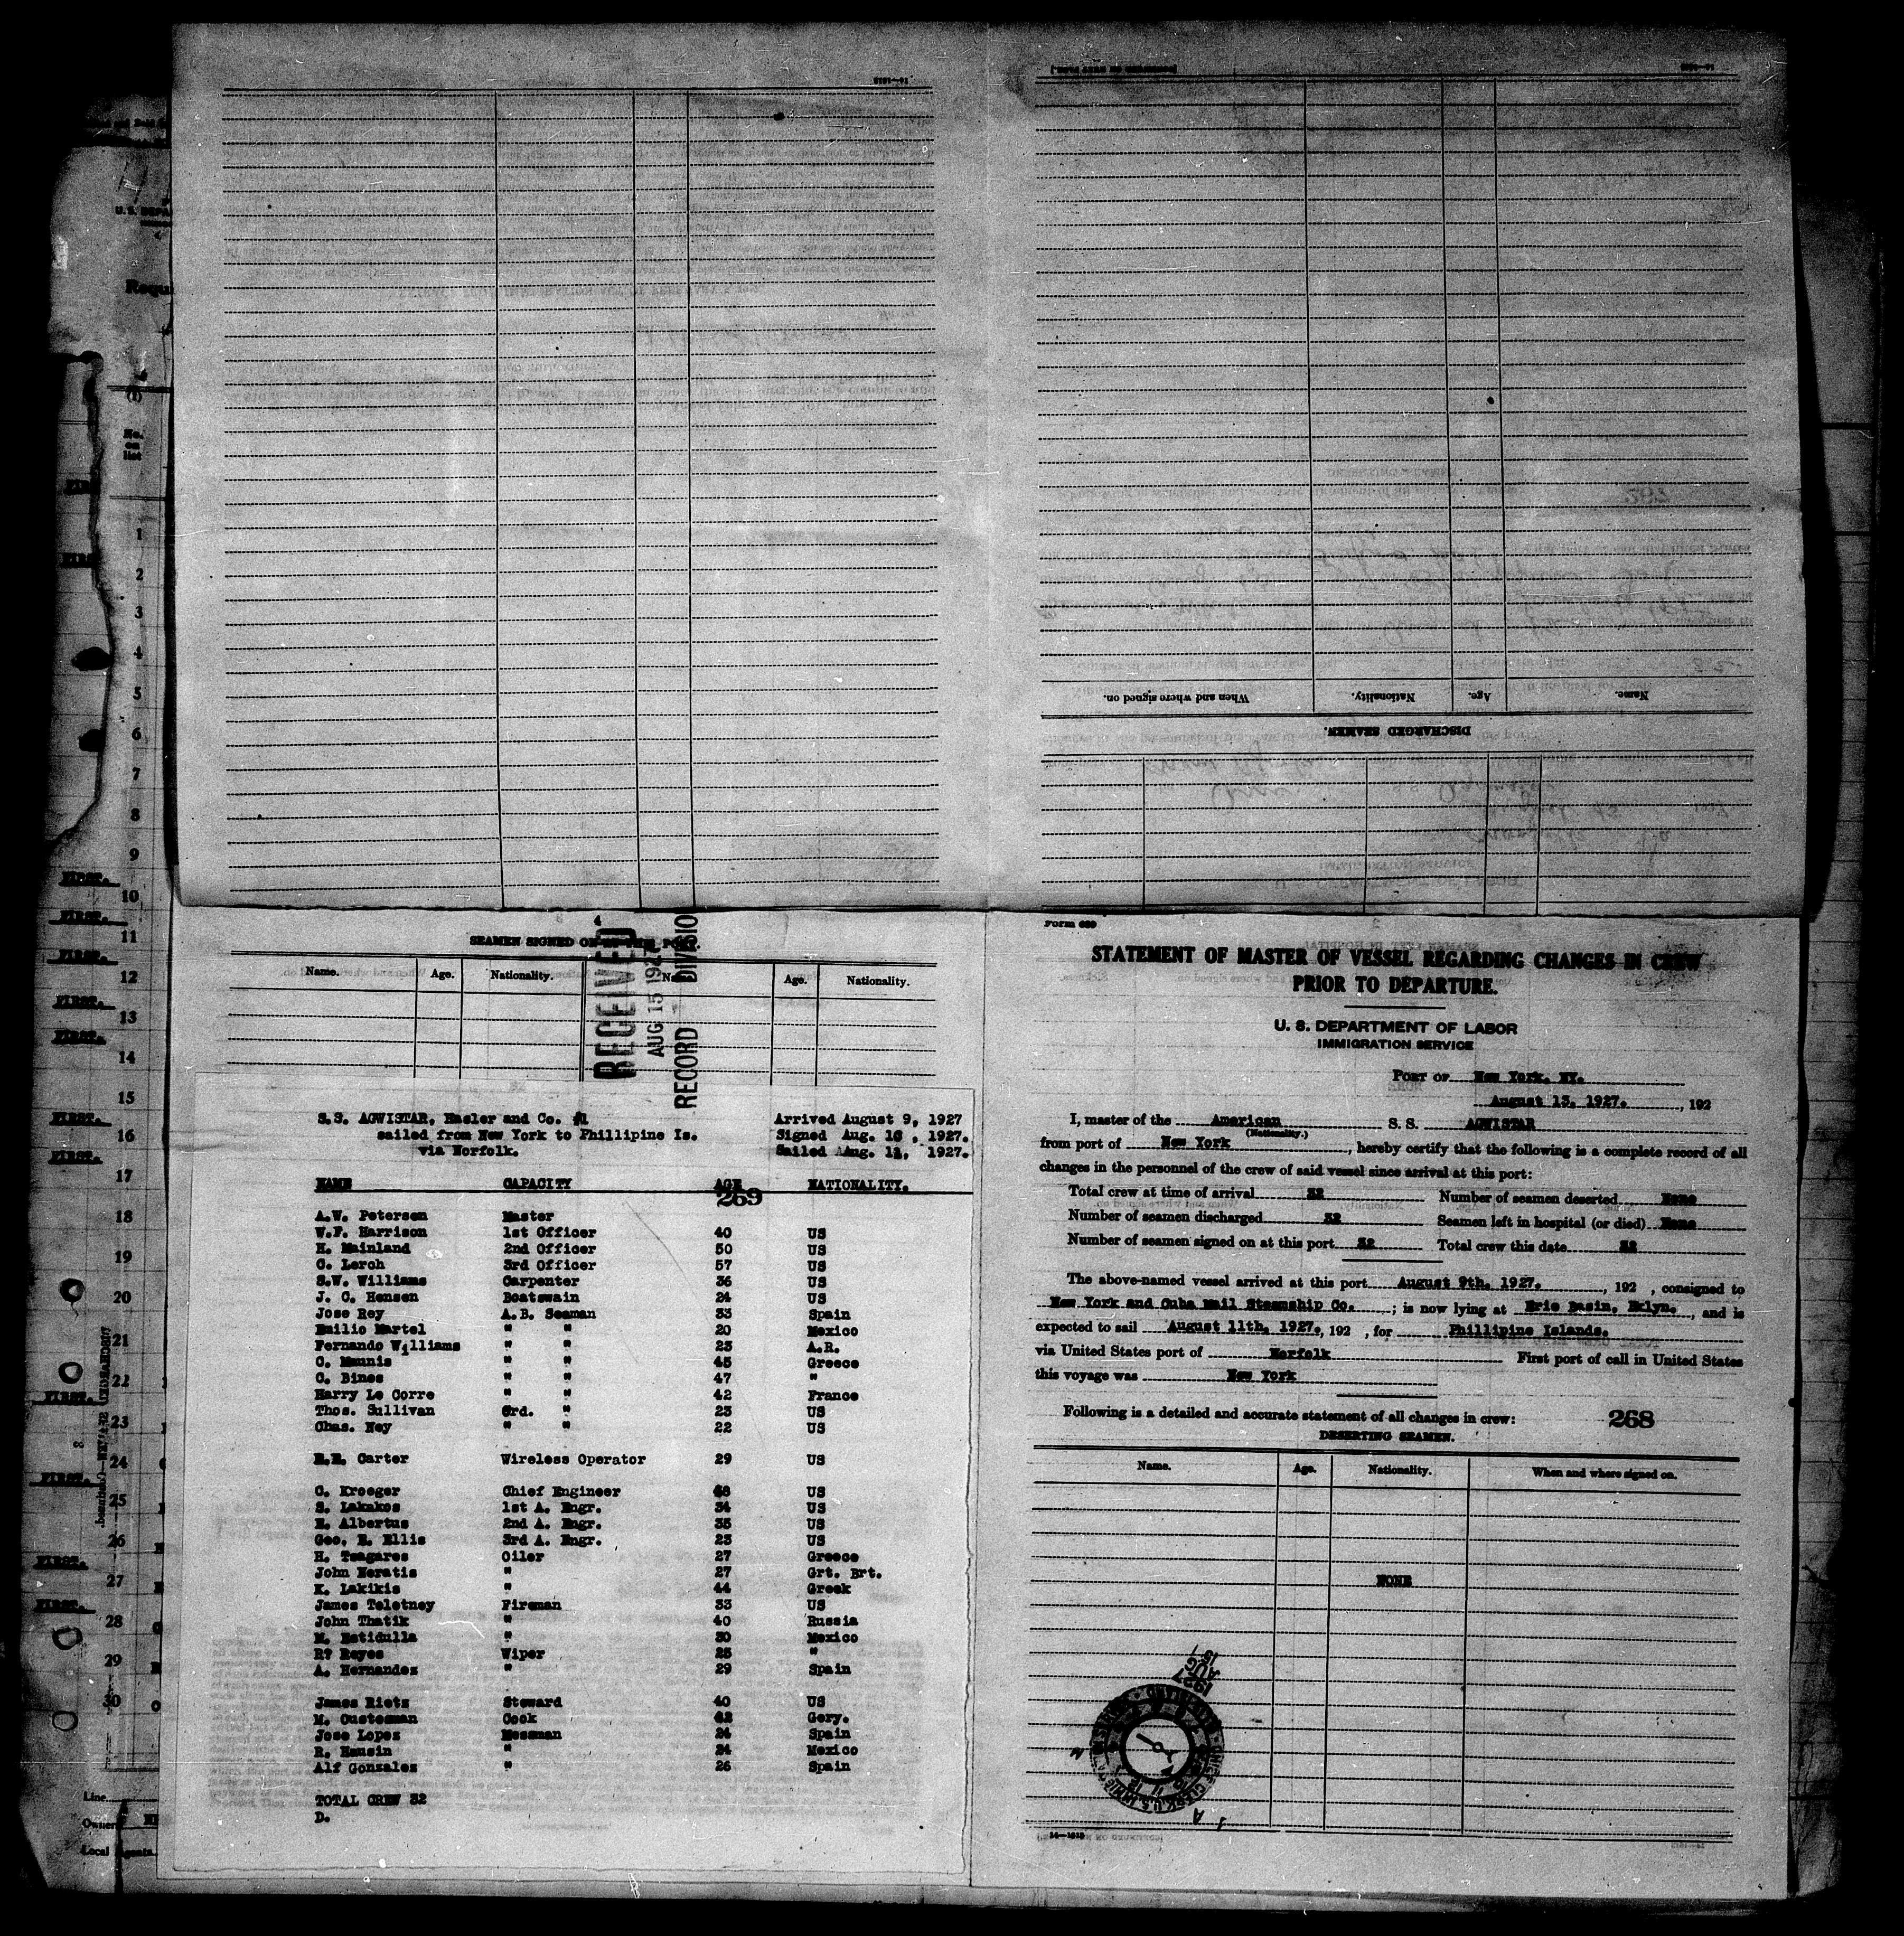 4
SEAMEN SIGNED ON AT THIS PORT.
Name. Age. Nationality. Age. Nationality.
RECEIVED
AUG 15 1927
RECORD DIVISIO
S.S. AGWISTAR, Hasler and Co. #1 Arrived August 9, 1927
sailed from New York to Phillipine Is. Signed Aug. 10, 1927.
via Norfolk. Sailed Aug. 11, 1927.
NAME CAPACITY AGE NATIONALITY.
269
A.W. Petersen Master
W.F. Harrison 1st Officer 40 US
H. Mainland 2nd Officer 50 US
C. Lerch 3rd Officer 57 US
S.W. Williams Carpenter 36 US
J. C. Hensen Boatswain 24 US
Jose Rey A.B. Seaman 33 Spain
Emilio Martel " " 20 Mexico
Fernando Williams " " 23 A.R.
C. Maunis " " 45 Greece
C. Bines " " 47 "
Harry Le Corre " " 42 France
Thos. Sullivan Ord. " 23 US
Chas. Ney " " 22 US
Carter Wireless Operator 29 US
C. Kroeger Chief Engineer US
S. Lakakos 1st A. Engr. 34 US
E. Albertus 2nd A. Engr. 35 US
Geo. E. Ellis 3rd A. Engr. 23 US
H. Tsagares Oiler 27 Greece
John Neratis " 27 Grt. Brt.
K. Lakikis " 44 Greek
James Teletney Fireman 33 US
John Thatik " 40 Russia
M. Hatidulla " 30 Mexico
R? Reyes Wiper 25 "
A. Hernandez " 29 Spain
James Rietz Steward 40 US
M. Custosman Cook 42 Gery.
Jose Lopez Messman 24 Spain
R. Hausin " 24 Mexico
Alf Gonzalez " 26 Spain
TOTAL CREW 32
D.
Form 689
STATEMENT OF MASTER OF VESSEL REGARDING CHANGES IN CREW
PRIOR TO DEPARTURE.
U. S. DEPARTMENT OF LABOR
IMMIGRATION SERVICE
PORT OF New York. NY.
August 13. 1927. , 192
I, master of the American S. S. AGWISTAR
(Nationality.)
from port of New York , hereby certify that the following is a complete record of all
changes in the personnel of the crew of said vessel since arrival at this port:
Total crew at time of arrival 32 Number of seamen deserted None
Number of seamen discharged 32 Seamen left in hospital (or died) None
Number of seamen signed on at this port 32 Total crew this date 32
The above-named vessel arrived at this port August 9th. 1927. , 192 , consigned to
New York and Cuba Mail Steamship Co. ; is now lying at Erie Basin, Bklyn. , and is
expected to sail August 11th. 1927. , 192 , for Phillipine Islands.
via United States port of Norfolk First port of call in United States
this voyage was New York
Following is a detailed and accurate statement of all changes in crew: 268
DESERTING SEAMEN.
Name. Age. Nationality. When and where signed on.
NONE
1927
AUG
15
DISCHARGED SEAMEN.
Name. Age. Nationality. When and where signed on.
No.
on
list
1
2
3
4
5
6
7
8
9
10
11
12
13
14
15
16
17
18
19
20
21
22
23
24
25
26
27
28
29
30
FIRST.
FIRST.
FIRST.
FIRST.
FIRST.
FIRST.
FIRST.
FIRST.
FIRST.
FIRST.
FIRST.
DISCHARGED SEAMEN—Continued.
Line
Owner
Local Agents